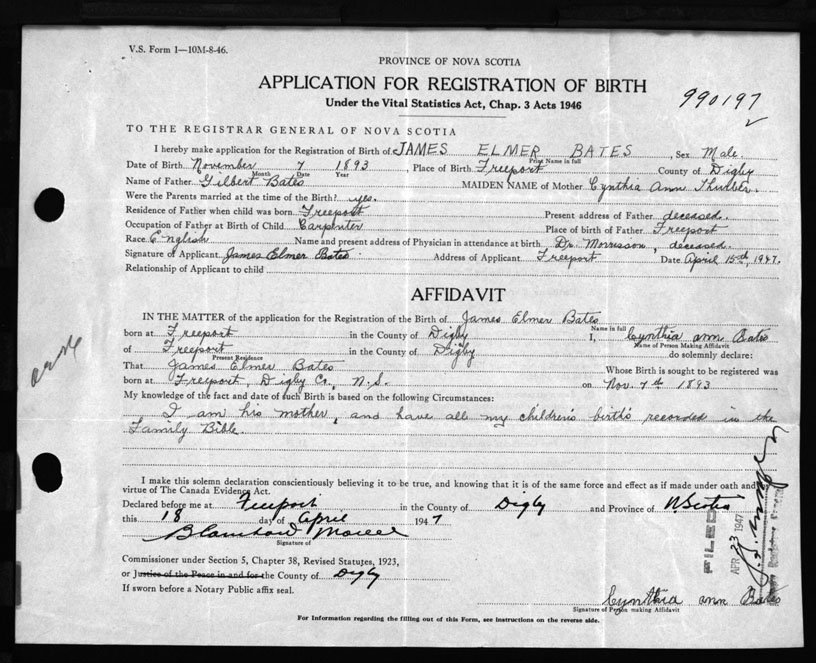 V.S. Form 1—10M-8-46.
PROVINCE OF NOVA SCOTIA
APPLICATION FOR REGISTRATION OF BIRTH
Under the Vital Statistics Act, Chap. 3 Acts 1946
990197
TO THE REGISTRAR GENERAL OF NOVA SCOTIA
I hereby make application for the Registration of Birth of JAMES ELMER BATES, Sex Male.
Print Name in full
Date of Birth November 7 1893, Place of Birth Freeport County of Digby
Month Date Year
Name of Father Gilbert Bates MAIDEN NAME of Mother Cynthia Ann Thurber.
Were the Parents married at the time of the Birth? yes.
Residence of Father when child was born Freeport Present address of Father deceased.
Occupation of Father at Birth of Child Carpenter Place of birth of Father Freeport
Race English Name and present address of Physician in attendance at birth Dr. Morrisson, deceased.
Signature of Applicant James Elmer Bates Address of Applicant Freeport Date April 15th, 1947.
Relationship of Applicant to child
AFFIDAVIT
IN THE MATTER of the application for the Registration of the Birth of James Elmer Bates
Name in full
born at Freeport in the County of Digby I, Cynthia ann Bates
Name of Person Making Affidavit
of Freeport in the County of Digby do solemnly declare:
Present Residence
That James Elmer Bates Whose Birth is sought to be registered was
born at Freeport, Digby Co., N.S. on Nov. 7th 1893
My knowledge of the fact and date of such Birth is based on the following Circumstances:
I am his mother, and have all my children's birth's recorded in the
Family Bible.
I make this solemn declaration conscientiously believing it to be true, and knowing that it is of the same force and effect as if made under oath and
virtue of The Canada Evidence Act.
Declared before me at Freeport in the County of Digby and Province of N. Scotia
this 18 day of April 1947
Signature of
Commissioner under Section 5, Chapter 38, Revised Statutes, 1923,
or Justice of the Peace in and for the County of Digby
If sworn before a Notary Public affix seal.
Cynthia ann Bates
Signature of Person making Affidavit
For Information regarding the filling out of this Form, see instructions on the reverse side.
FILED
APR 23 1947